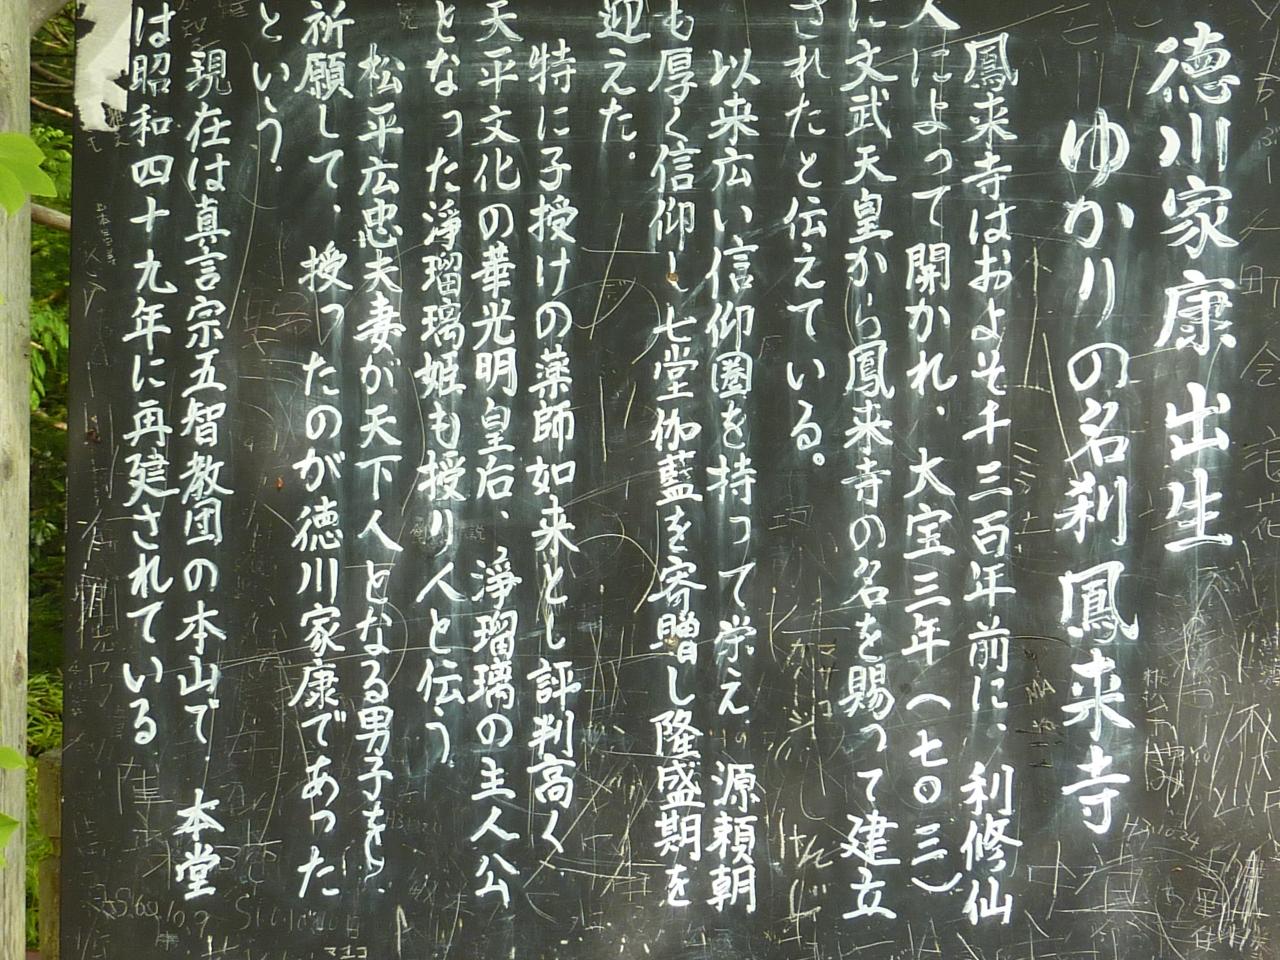 徳川家康出生
ゆかりの名刹鳳来寺
鳳来寺はおよそ千三百年前に、利修仙
人によって開かれ、大宝三年(七〇三)
に文武天皇から鳳来寺の名を賜って建立
されたと伝えている。
以来広い信仰圏を持って栄え、源頼朝
も厚く信仰し七堂伽藍を寄贈し隆盛期を
迎えた。
特に子授けの薬師如来とし評判高く
天平文化の華光明皇后、浄瑠璃の主人公
となった浄瑠璃姫も授り人と伝う。
松平広忠夫妻が天下人となる男子をら、
祈願して、授ったのが徳川家康であった
という。
現在は真言宗五智教団の本山で、本堂
は昭和四十九年に再建されている